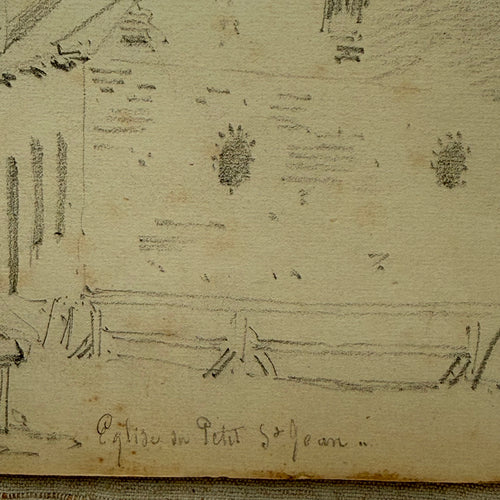 Eglise du Petit St Jean à